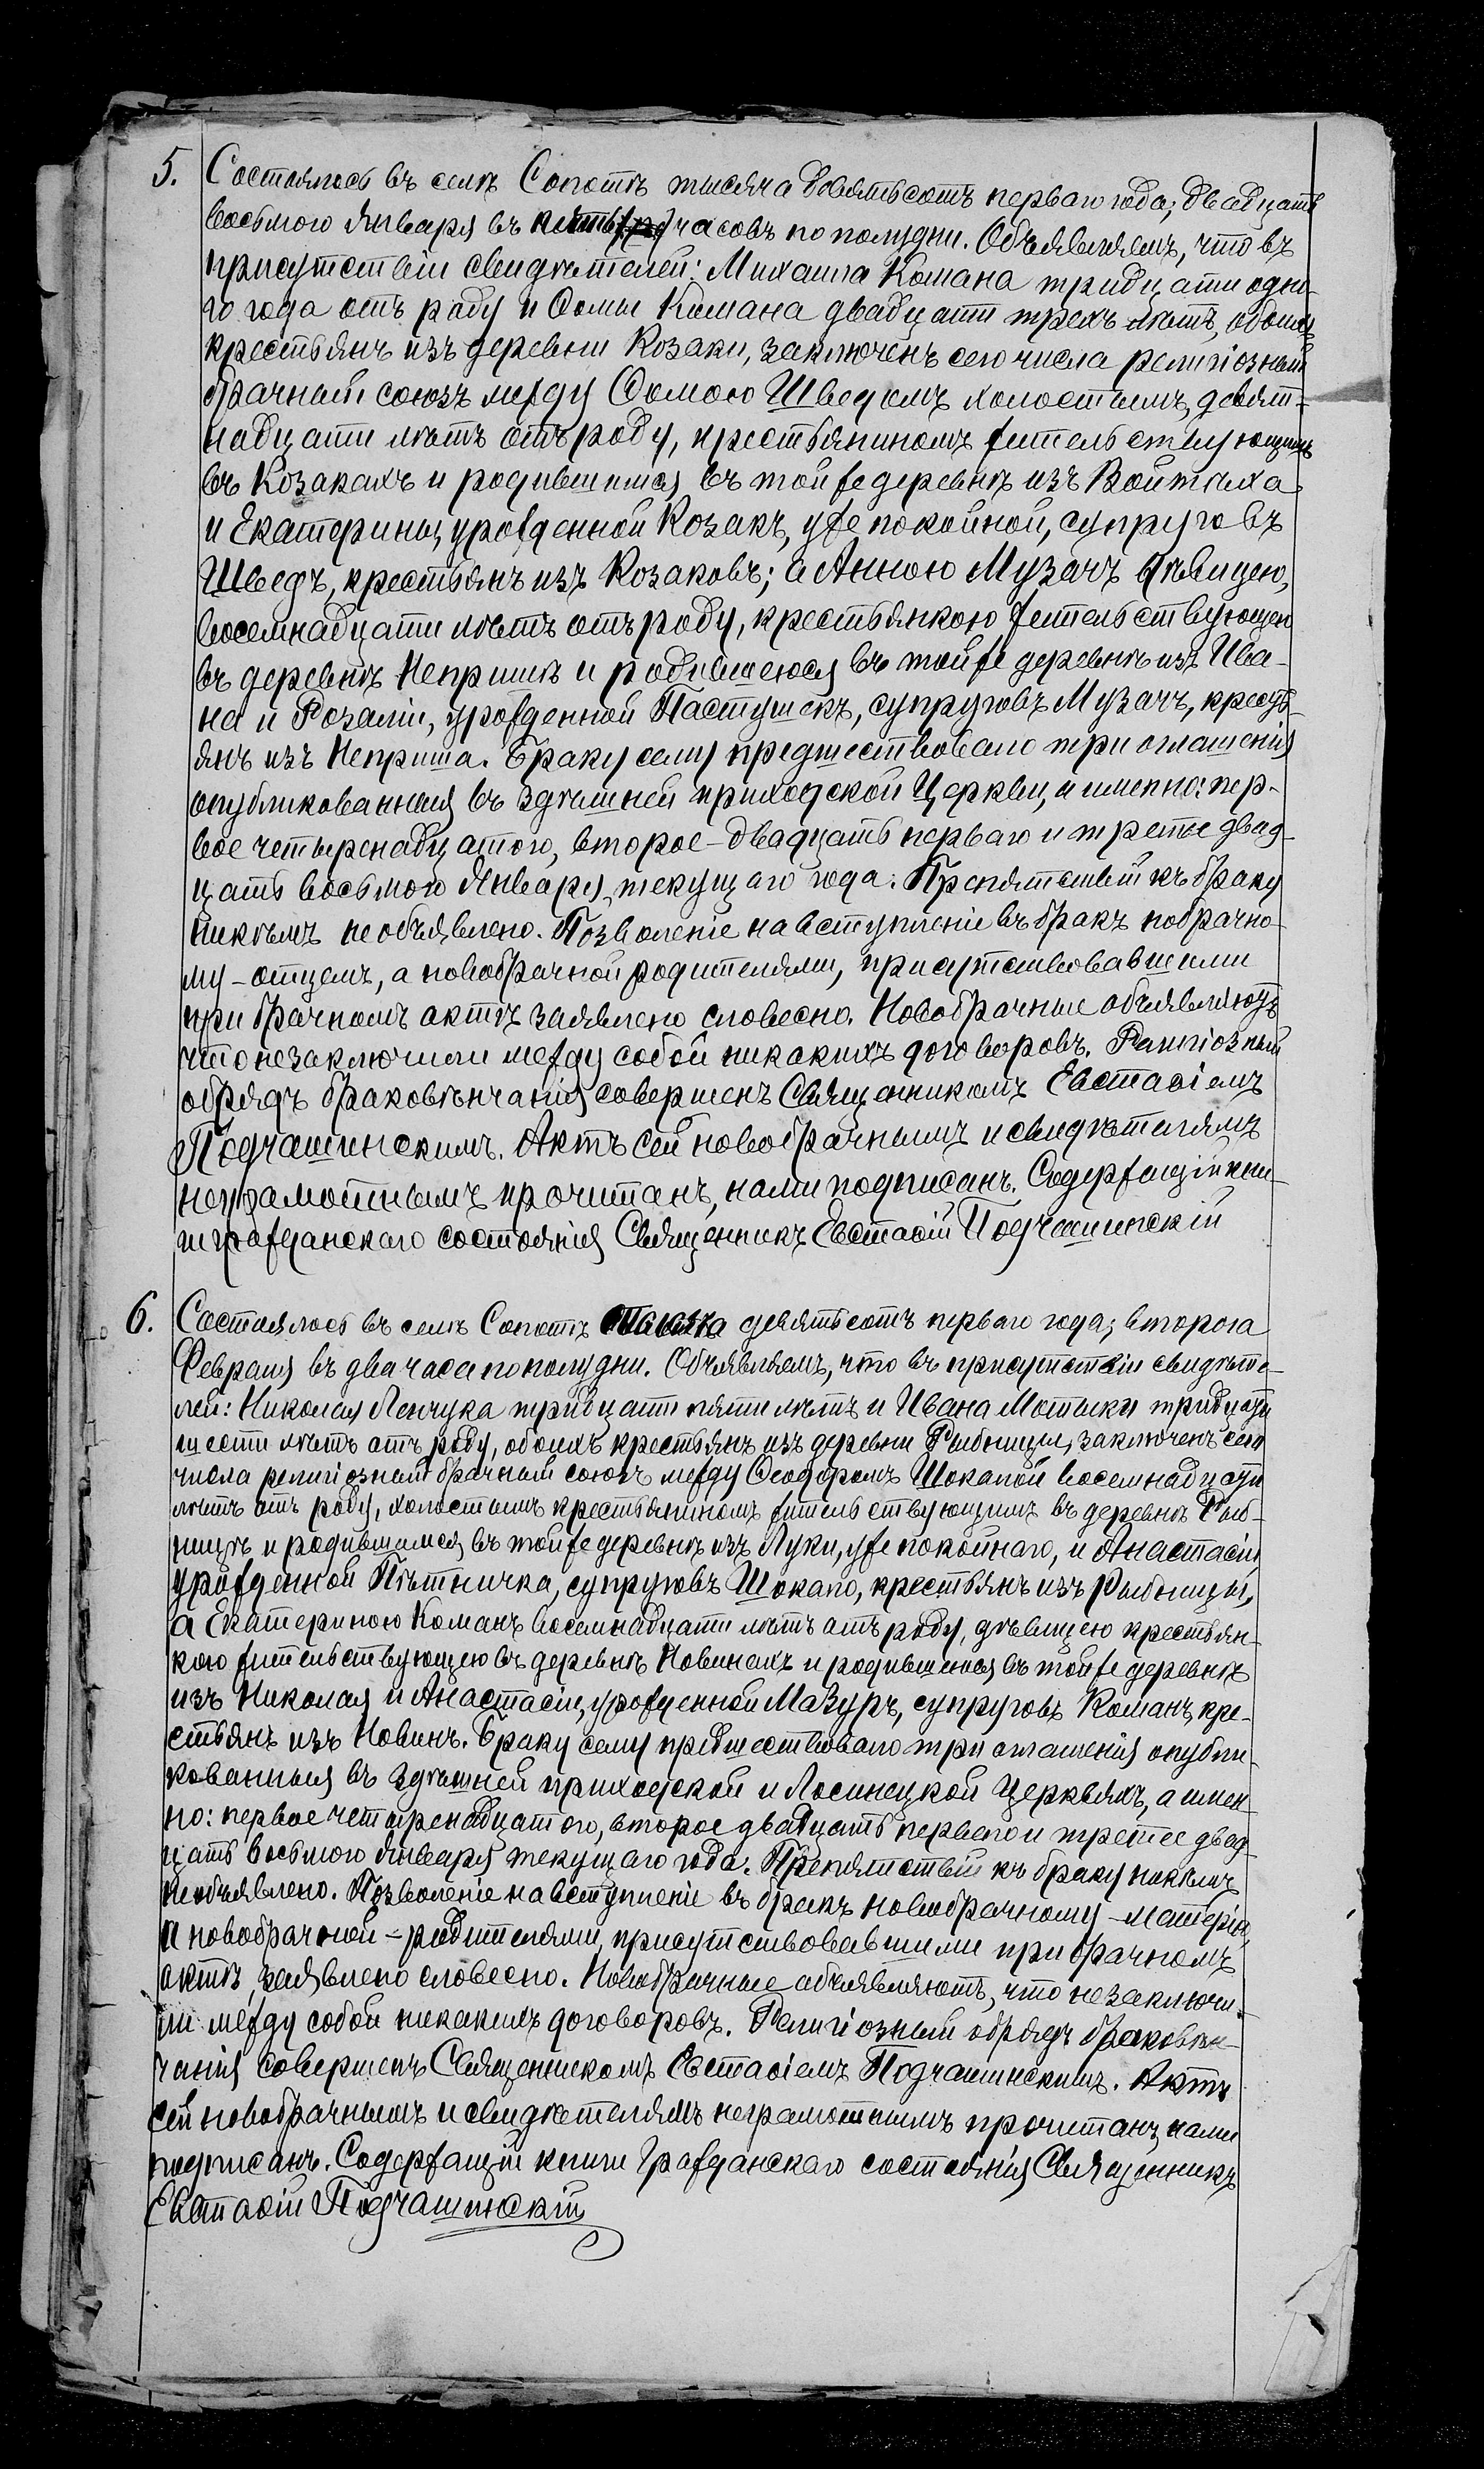 5. Состоялось въ селѣ Сопотѣ тысяча девятьсотъ перваго года; двадцать
восьмого Января въ часовъ по полудни. Объявляемъ, что въ
присутствіи свидѣтелей: Михаила Комана тридцати одно-
го года отъ роду и Ѳомы Комана двадцати трехъ лѣтъ, обоихъ
крестьянъ изъ деревни Козаки, заключенъ сего числа религіозный
брачный союзъ между Ѳомою Шведомъ холостымъ, девят-
надцати лѣтъ отъ роду, крестьяниномъ жительствующимъ
въ Козакахъ и родившимся въ той же деревнѣ изъ Войтѣха
и Екатерины, урожденной Козакъ, уже покойной, супруговъ
Шведъ, крестьянъ изъ Козаковъ; а Анною Музачъ дѣвицею,
восемнадцати лѣтъ отъ роду, крестьянкою жительствующею
въ деревнѣ Непришѣ и родившеюся въ той же деревнѣ изъ Ива-
на и Розаліи, урожденной Пастушекъ, супруговъ Музачъ, кресть-
янъ изъ Неприша. Браку сему предшествовало три оглашенія
опубликованныя въ здѣшней приходской Церкви, а именно: пер-
вое четырнадцатого, второе - двадцать перваго и третье двад-
цать восьмого Января текущаго года. Препятствій къ браку
никѣмъ не объявлено. Позволеніе на вступленіе въ бракъ нобрачно-
му - отцемъ, а новобрачной родителями, присутствовавшими
при брачномъ актѣ заявлено словесно. Новобрачные объявляютъ
что незаключили между собой никакихъ договоровъ. Религіозный
обрядъ браковѣнчанія совершенъ Священникомъ Евстаѳіемъ
Подчашинскимъ. Актъ сей новобрачнымъ и свидѣтелямъ
неграмотнымъ прочитанъ, нами подписанъ. Содержащій кни-
ги гражданскаго состоянія Священникъ Евстаѳій Подчашинскій
6. Состоялось въ селѣ Сопотѣ тысяча девятьсотъ перваго года; второго
Февраля въ два часа по полудни. Объявляемъ, что въ присутствіи свидѣте-
лей: Николая Ленчука тридцати пяти лѣтъ и Ивана Мотыки тридцати
шести лѣтъ отъ роду, обоихъ крестьянъ изъ деревни Рыбницы, заключенъ сего
числа религіозный брачный союзъ между Ѳеодоромъ Шокалой восемнадцати
лѣтъ отъ роду, холостымъ крестьяниномъ жительствующимъ въ деревнѣ Рыб-
ницѣ и родившимся въ той же деревнѣ изъ Луки, уже покойнаго, и Анастасіи
урожденной Плѣтничка, супруговъ Шокало, крестьянъ изъ Рыбницы,
а Екатериною Команъ восемнадцати лѣтъ отъ роду, дѣвицею крестьян-
кою жительствующею въ деревнѣ Новинахъ и родившеюся въ той же деревнѣ
изъ Николая и Анастасіи, урожденной Мазуръ, супруговъ Команъ, кре-
стьянъ изъ Новинъ. Браку сему предшествовало три оглашенія опубли-
кованныя въ здѣшней приходской и Лосинецкой Церквяхъ, а имен-
но: первое четырнадцатого, второе двадцать перваго и третье двад-
цать восьмого Января текущаго года. Препятствій къ браку никѣмъ
необъявлено. Позволеніе на вступленіе въ бракъ новобрачному - матерію,
а новобрачной - родителями, присутствовавшими при брачномъ
актѣ, заявлено словесно. Новобрачные объявляютъ, что незаключи-
ли между собой никакихъ договоровъ. Религіозный обрядъ браковѣн-
чанія совершенъ Священникомъ Евстаѳіемъ Подчашинскимъ. Актъ
сей новобрачнымъ и свидѣтелямъ неграмотнымъ прочитанъ, нами
подписанъ. Содержащій книги Гражданскаго состоянія Священникъ
Евстаѳій Подчашинскій